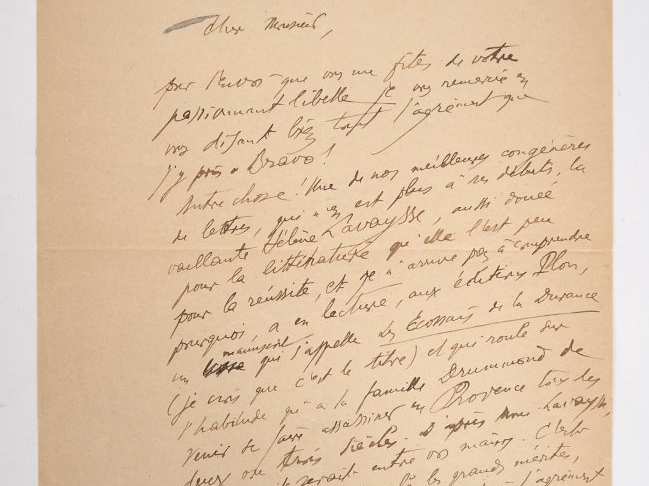 Cher Monsieur,
par l'envoi que vous me faites de votre
passionnant libelle. Je vous remercie en
vous disant bien tout l'agrément que
j'y pris. Bravo!
Autre chose! Une de nos meilleures congénères
de lettres, qui n'en est plus à ses débuts, la
vaillante Hélène Lavaysse, aussi douée
pour la littérature qu'elle l'est peu
pour la réussite, et je n'arrive pas à comprendre
pourquoi, a en lecture, aux éditions Plon,
un manuscrit qui s'appelle Les Écossais de la Durance
(je crois que c'est le titre) et qui roule sur
l'habitude qu'a la famille Drummond de
venir se faire assassiner en Provence tous les
deux ou trois siècles. D'après Mme Lavaysse,
serait entre vos mains. C'est
les grands mérites,
l'agrément